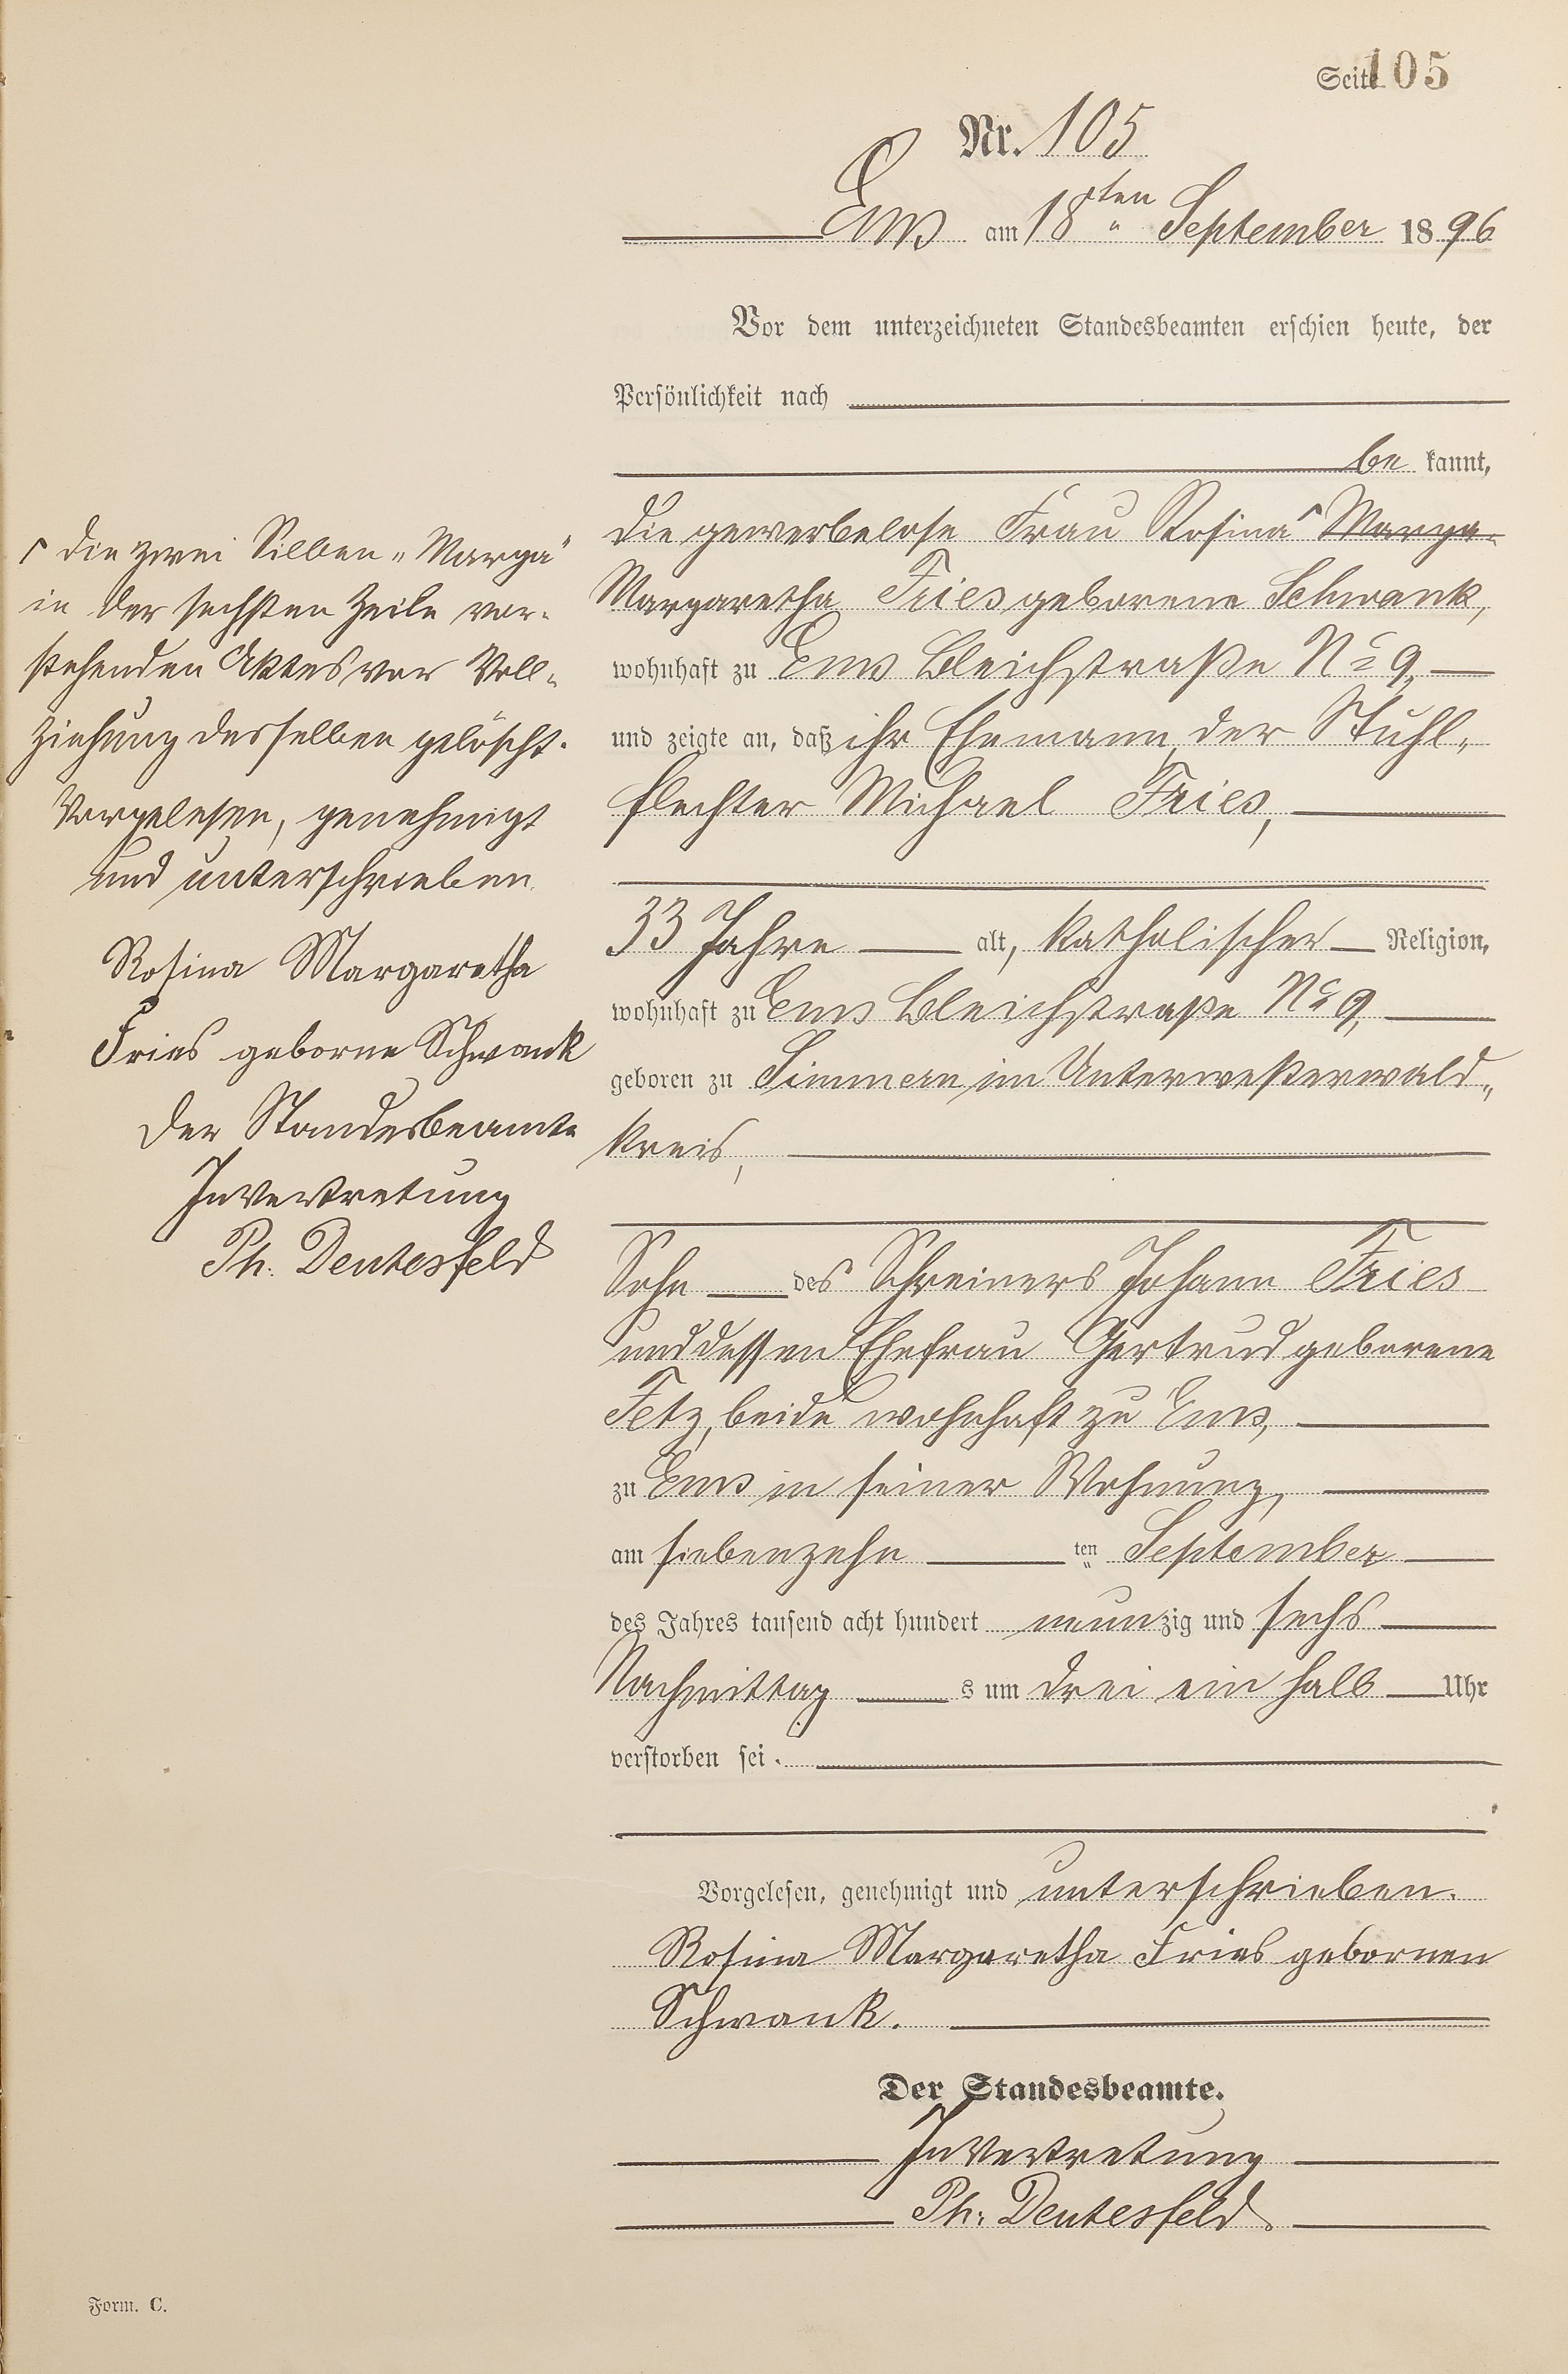 Seite 105
Nr. 105
Ems am 18ten September 1896
Vor dem unterzeichneten Standesbeamten erschien heute, der
Persönlichkeit nach
be kannt,
die gewerbelose Frau Rosina ⌈ Marga-
Margaretha Fries geborene Schwank,
wohnhaft zu Ems Bleichstraße No 9,
und zeigte an, daß ihr Ehemann, der Stuhl-
flechter Michael Fries,
33 Jahre alt, katholischer Religion,
wohnhaft zu Ems Bleichstraße No 9,
geboren zu Simmern im Unterwesterwald-
kreis,
Sohn des Schreiners Johann Fries
und dessen Ehefrau Gertrud geborene
Fetz, beide wohnhaft zu Ems,
zu Ems in seiner Wohnung,
am siebenzehn ten September
des Jahres tausend acht hundert neunzig und sechs
Nachmittag s um drei ein halb Uhr
verstorben sei.
Vorgelesen, genehmigt und unterschrieben.
Rosina Margaretha Fries gebornen
Schwank.
Der Standesbeamte.
In Vertretung
Ph. Deutesfeld
⌈ die zwei Silben „Marga"
in der sechsten Zeile vor-
stehenden Aktes vor Voll-
ziehung desselben gelöscht.
Vorgelesen, genehmigt
und unterschrieben.
Rosina Margaretha
Fries geborne Schwank
Der Standesbeamte
In Vertretung
Ph. Deutesfeld
Form. C.